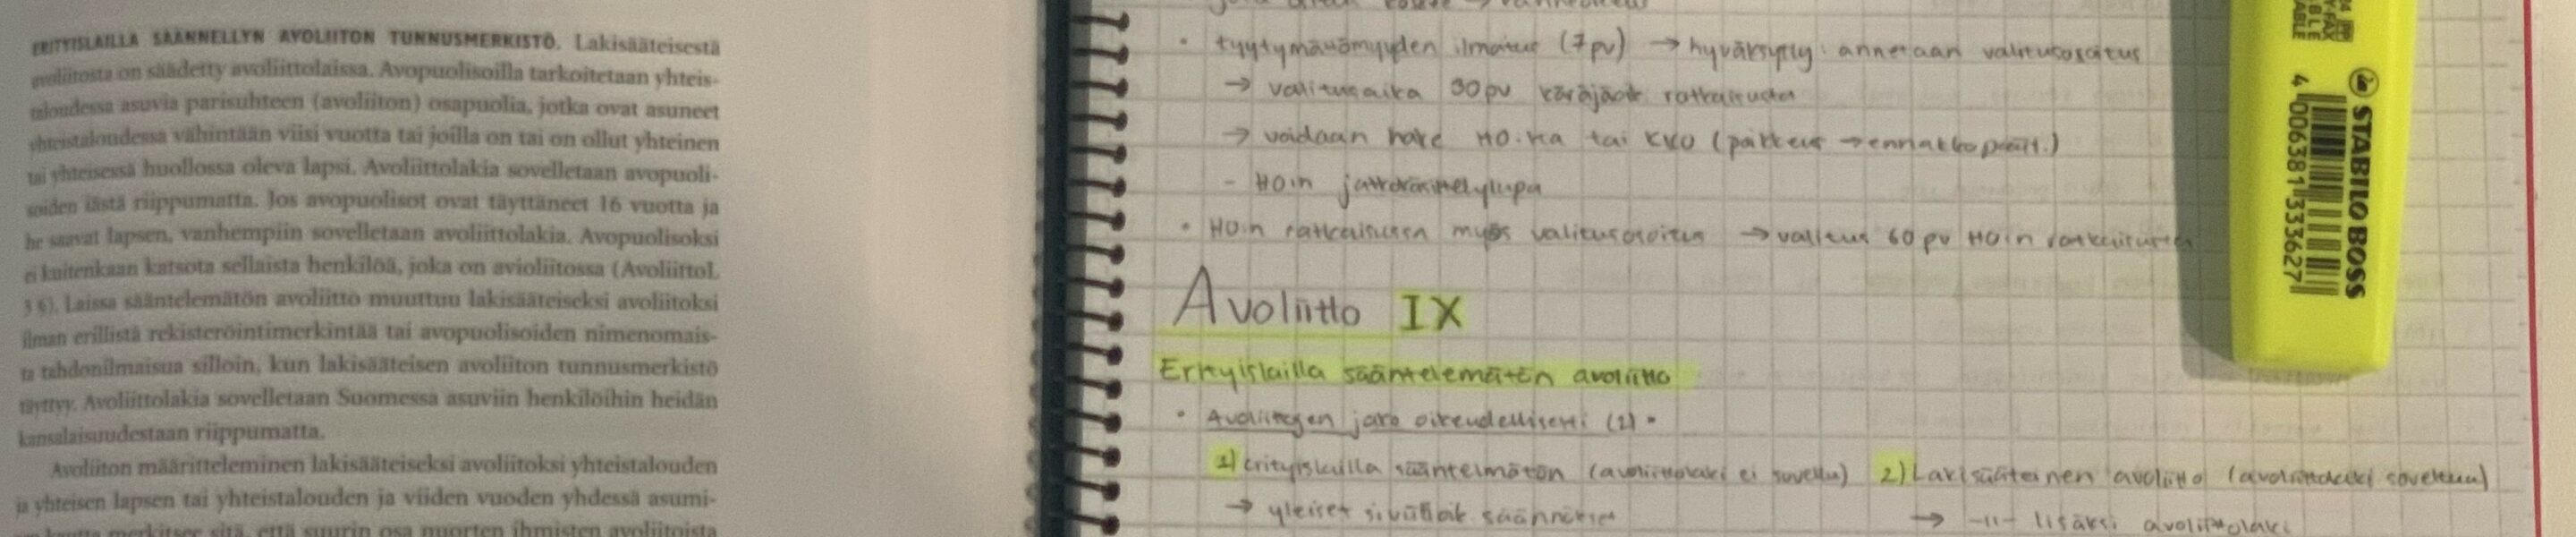 ERITYISLAILLA SÄÄNNELLYN AVOLIITON TUNNUSMERKISTÖ. Lakisääteisestä
avoliitosta on säädetty avoliittolaissa. Avopuolisoilla tarkoitetaan yhteis-
taloudessa asuvia parisuhteen (avoliiton) osapuolia, jotka ovat asuneet
yhteistaloudessa vähintään viisi vuotta tai joilla on tai on ollut yhteinen
tai yhteisessä huollossa oleva lapsi. Avoliittolakia sovelletaan avopuoli-
soiden iästä riippumatta. Jos avopuolisot ovat täyttäneet 16 vuotta ja
he saavat lapsen, vanhempiin sovelletaan avoliittolakia. Avopuolisoksi
ei kuitenkaan katsota sellaista henkilöä, joka on avioliitossa (AvoliittoL
3 §). Laissa sääntelemätön avoliitto muuttuu lakisääteiseksi avoliitoksi
ilman erillistä rekisteröintimerkintää tai avopuolisoiden nimenomais-
ta tahdonilmaisua silloin, kun lakisääteisen avoliiton tunnusmerkistö
täyttyy. Avoliittolakia sovelletaan Suomessa asuviin henkilöihin heidän
kansalaisuudestaan riippumatta.
Avoliiton määritteleminen lakisääteiseksi avoliitoksi yhteistalouden
ja yhteisen lapsen tai yhteistalouden ja viiden vuoden yhdessä asumi-
merkitsee sitä, että suurin osa nuorten ihmisten avoliitoista
• tyytymättömyyden ilmaisu (7 pv) → hyväksytty: annetaan valitusosoitus
→ valitusaika 30 pv käräjäoik ratkaisusta
→ voidaan hake HO:ka tai KKO (
- HO:n jatkokäsittelylupa
• HO:n ratkaisussa myös valitusosoitus → valitus 60 pv HO:n ratkaisusta
Avoliitto IX
Erityislailla sääntelemätön avoliitto
• Avoliittojen jako oikeudellisesti (2) •
1) erityislailla sääntelmätön (avoliittolaki ei sovellu) 2) Lakisääteinen avoliitto (avoliittolaki soveltuu)
→ yleiset siviilioik säännökset → -11- lisäksi avoliittolaki
STABILO BOSS
4 006381 333627